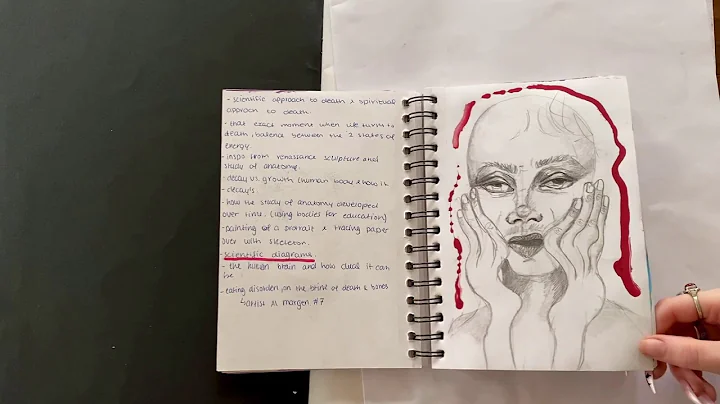 - scientific approach to death x spiritual
approach to death.
- that exact moment when life turns to
death, balance between the 2 states of
energy.
- inspo from renaissance sculpture and
study of anatomy.
- decay vs. growth (human body & how it
- decays.
- how the study of anatomy developed
over time. (using bodies for education)
- painting of a protrait x tracing paper
over with skeleton.
- scientific diagrams.
- the human brain and how it can
be
- eating disorder, on the brink of death & bones
↳ artist margen #7